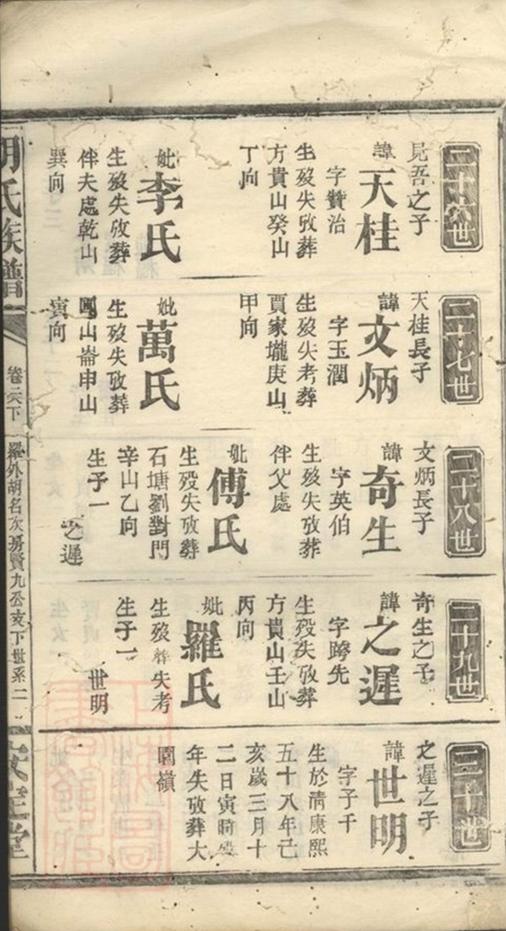 二十六世
見吾之子
諱天桂
字贊治
生歿失攷葬
方貴山癸山
丁向
妣李氏
生歿失攷葬
伴夫處乾山
巽向
二十七世
天桂長子
諱文炳
字玉潤
生歿失考葬
賈家壠庚山
甲向
妣萬氏
生歿失攷葬
山崙申山
寅向
二十八世
文炳長子
諱奇生
字英伯
生歿失攷葬
伴父處
妣傅氏
生歿失攷葬
石塘劉對門
辛山乙向
生子一
之遲
二十九世
奇生之子
諱之遲
字跨先
生歿失攷葬
方貴山壬山
丙向
妣羅氏
生歿葬失考
生子一
世明
三十世
之遲之子
諱世明
字子千
生於清康熙
五十八年己
亥歲三月十
二日寅時歿
年失攷葬大
圍嶺
胡氏族譜
卷六下
羅外胡名次房賢九公亥下世系二
安定堂